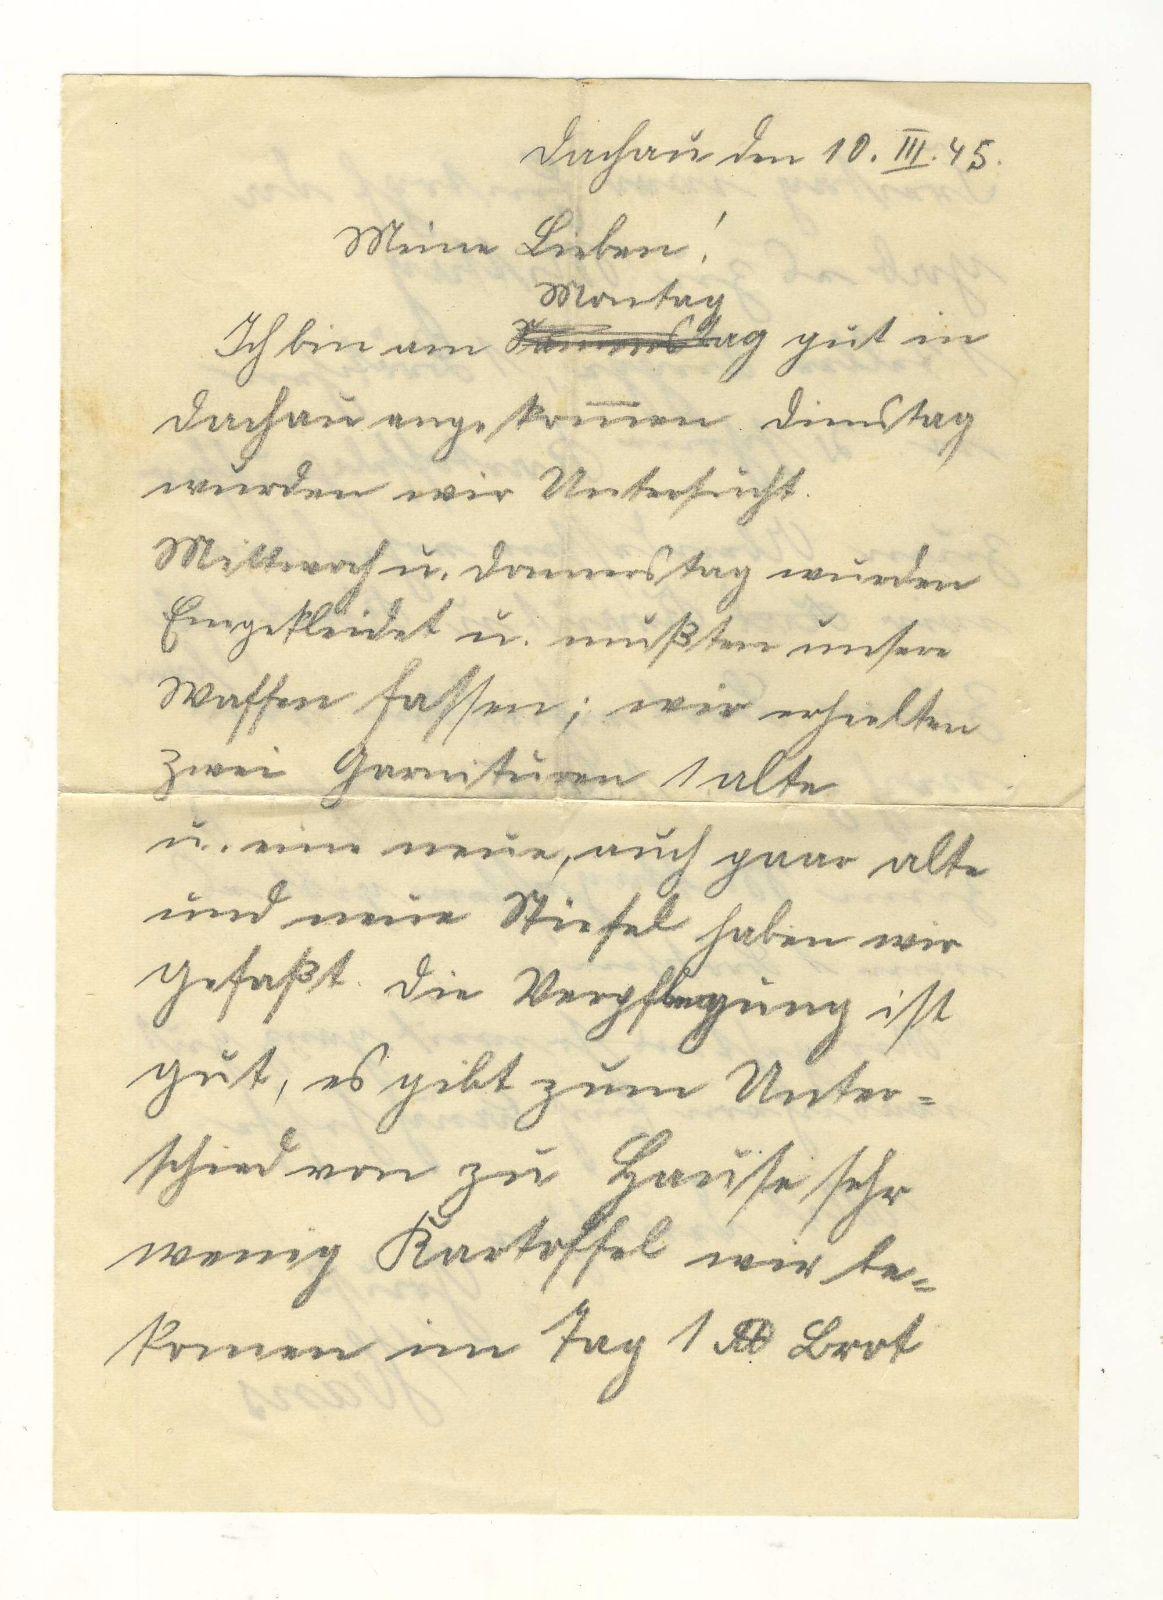 Dachau den 10. III. 45.
Meine Lieben!
Montag
Ich bin am gut in
Dachau angekom̅en. Dienstag
wurden wir Untersucht.
Mittwoch u. Donnerstag wurden
Eingekleidet u. mußten unsere
Waffen fassen; wir erhielten
zwei Garnituren 1 alte
u. eine neue, auch paar alte
und neue Stiefel haben wir
gefaßt. Die Verpflegung ist
gut, es gibt zum Unter=
schied von zu Hause sehr
wenig Kartoffel wir be=
komen im Tag 1 Brot